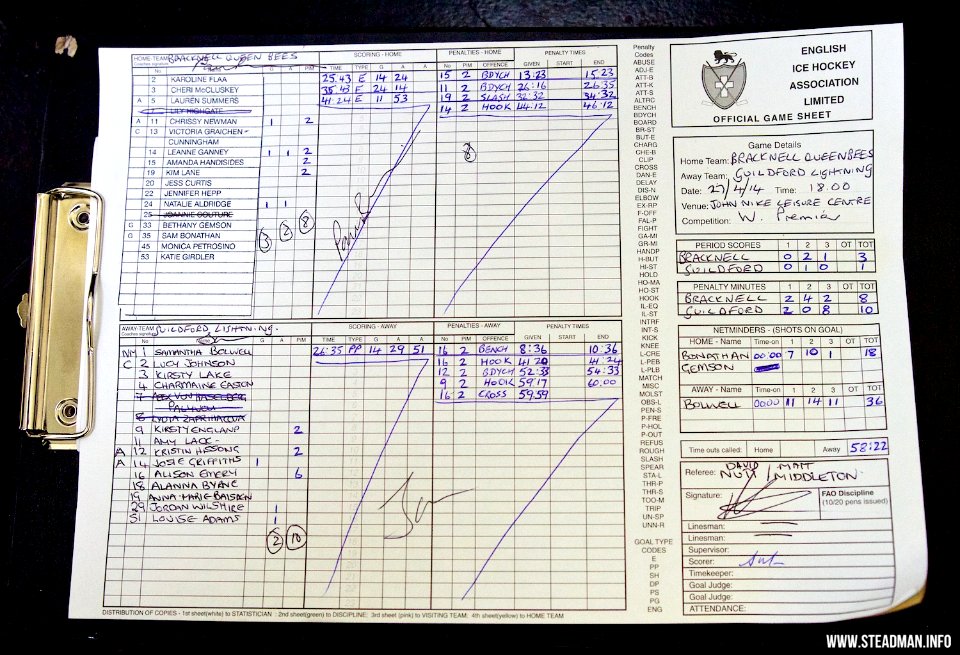 HOME-TEAM BRACKNELL QUEEN BEES
Coaches signature
SCORING - HOME
PENALTIES - HOME
PENALTY TIMES
No G A PIM
TIME TYPE G A A
No PIM OFFENCE GIVEN START END
2 KAROLINE FLAA
3 CHERI McCLUSKEY
A 5 LAUREN SUMMERS
LILY HIGHGATE
A 11 CHRISSY NEWMAN 1 2
C 13 VICTORIA GRAICHEN -
CUNNINGHAM
14 LEANNE GANNEY 1 1 2
15 AMANDA HANDISIDES 2
19 KIM LANE 2
20 JESS CURTIS
22 JENNIFER HEPP
24 NATALIE ALDRIDGE 1 1
25 JOANNIE COUTURE
G 33 BETHANY GEMSON
G 35 SAM BONATHAN
45 MONICA PETROSINO
53 KATIE GIRDLER
3 2 8
25.43 E 14 24
35.43 E 24 14
41.24 E 11 53
15 2 BDYCH 13:23 15.23
11 2 BDYCH 26:16 26:35
19 2 SLASH 32:32 34:32
14 2 HOOK 44.12 46.12
8
AWAY-TEAM GUILDFORD LIGHTNING.
Coaches signature
SCORING - AWAY
PENALTIES - AWAY
PENALTY TIMES
No G A PIM
TIME TYPE G A A
No PIM OFFENCE GIVEN START END
NM 1 SAMANTHA BOLWELL
C 2 LUCY JOHNSON
3 KIRSTY LAKE
4 CHARMAINE EASTON
7
8
9 KIRSTY ENGLAND 2
11 AMY LACK
A 12 KRISTIN HISSONG 2
A 14 JOSIE GRIFFITHS 1
16 ALISON EMERY 6
18 ALANNA BYRNE
19 ANNA-MARIE
29 JORDAN WILSHIRE 1
51 LOUISE ADAMS 1
2 10
26:35 PP 14 29 51
16 2 BENCH 8:36 10:36
16 2 HOOK 41:24
12 2 BDYCH 52:33 54:33
9 2 HOOK 59.17 60.00
16 2 CROSS 59.59
Penalty
Codes
ABUSE
ADJ-E
ATT-B
ATT-K
ATT-S
ALTRC
BENCH
BDYCH
BOARD
BR-ST
BUT-E
CHARG
CHE-B
CLIP
CROSS
DAN-E
DELAY
DIS-N
ELBOW
EX-RP
F-OFF
FAL-P
FIGHT
GA-MI
GR-MI
HANDP
H-BUT
HI-ST
HOLD
HO-MA
HO-ST
HOOK
IL-EQ
IL-ST
INTRF
INT-S
KICK
KNEE
L-CRE
L-PEB
L-PLB
MATCH
MISC
MOLST
OBS-L
PEN-S
P-FRE
P-HOL
P-OUT
REFUS
ROUGH
SLASH
SPEAR
STA-L
THR-P
THR-S
TOO-M
TRIP
UN-SP
UNN-R
GOAL TYPE
CODES
E
PP
SH
DP
PS
PG
ENG
ENGLISH
ICE HOCKEY
ASSOCIATION
LIMITED
OFFICIAL GAME SHEET
Game Details
Home Team: BRACKNELL QUEENBEES
Away Team: GUILDFORD LIGHTNING
Date: 27/4/14 Time: 18.00
Venue: JOHN NIKE LEISURE CENTRE
Competition: W. Premier
PERIOD SCORES 1 2 3 OT TOT
BRACKNELL 0 2 1 3
GUILDFORD 0 1 0 1
PENALTY MINUTES 1 2 3 OT TOT
BRACKNELL 2 4 2 8
GUILDFORD 2 0 8 10
NETMINDERS - (SHOTS ON GOAL)
HOME - Name Time-on 1 2 3 OT TOT
BONATHAN 00:00 7 10 1 18
GEMSON
AWAY - Name Time-on 1 2 3 OT TOT
BOLWELL 00.00 11 14 11 36
Time outs called: Home Away 58:22
Referee: DAVID NUTT / MATT MIDDLETON
Signature: FAO Discipline
(10/20 pens issued)
Linesman:
Linesman:
Supervisor:
Scorer:
Timekeeper:
Goal Judge:
Goal Judge:
ATTENDANCE:
DISTRIBUTION OF COPIES - 1st sheet(white) to STATISTICIAN : 2nd sheet(green) to DISCIPLINE; 3rd sheet (pink) to VISITING TEAM. 4th sheet(yellow) to HOME TEAM
WWW.STEADMAN.INFO